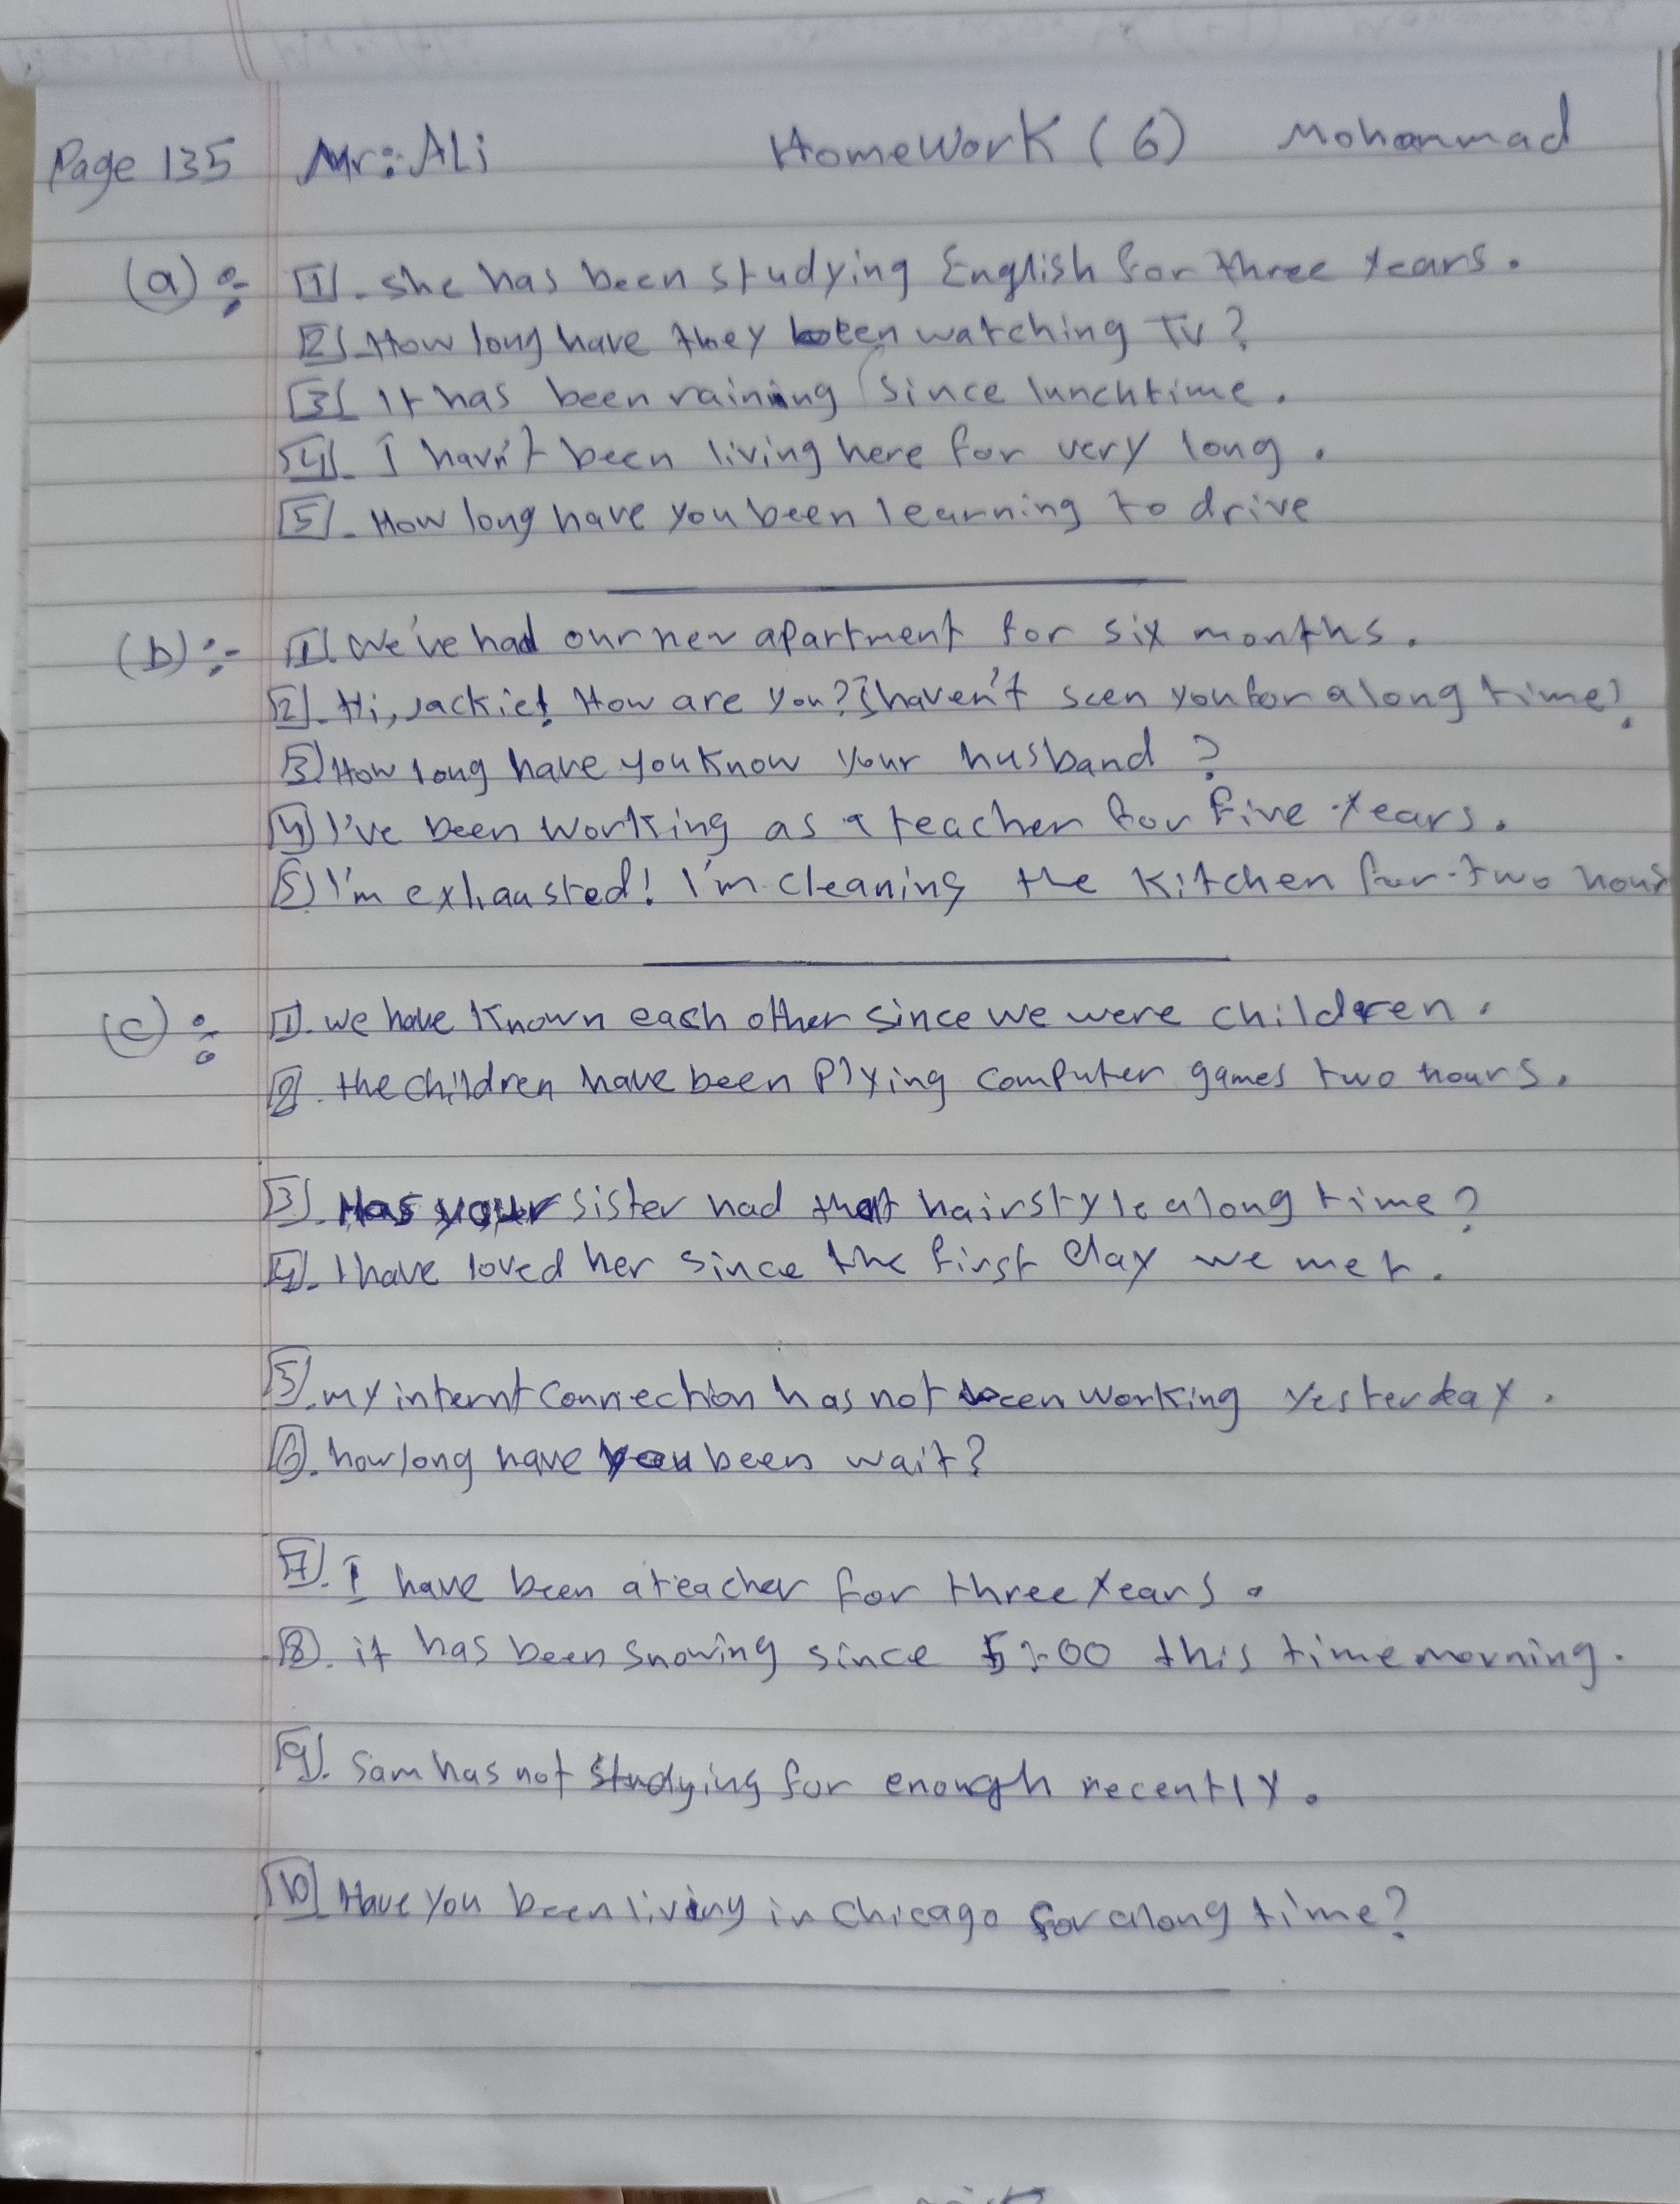 Page 135 Mr: ALi HomeWork (6) Mohammad
(a) :- [1]. she has been studying English for three years.
[2]. How long have they been watching TV?
[3] It has been raining since lunchtime.
[4]. I havn't been living here for very long.
[5]. How long have you been learning to drive
(b) :- [1] We've had our new apartment for six months.
[2]. Hi, Jackie! How are you? I haven't seen you for a long time!
[3] How long have you know your husband?
[4] I've been working as a teacher for five years.
[5] I'm exhausted! I'm cleaning the kitchen for two hours
(c) : [1]. we have known each other since we were children.
[2]. the children have been Plying computer games two hours.
[3]. Has your sister had that hairstyle a long time?
[4]. I have loved her since the first day we met.
[5]. my internt connection has not been working yesterday.
[6]. how long have you been wait?
[7]. I have been a teacher for three years.
[8]. it has been snowing since 5:00 this time morning.
[9]. Sam has not studying for enough recently.
[10] Have you been living in Chicago for a long time?